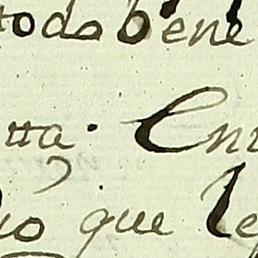 todo bene
tta. En
que le